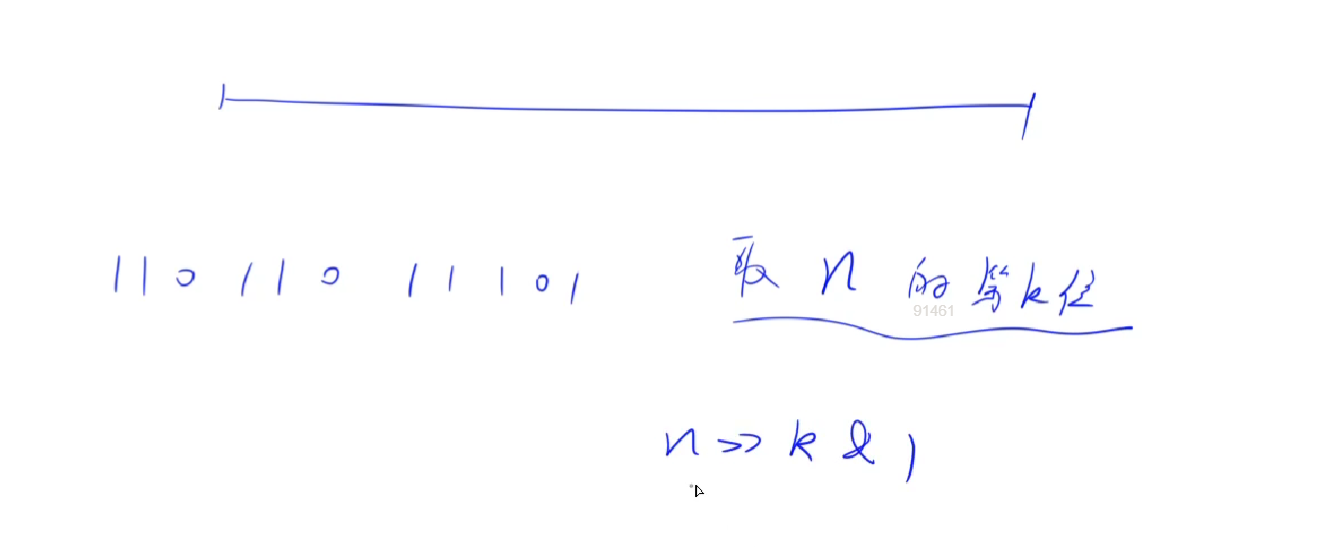 11011011101 取 n 的第k位
91461
n >> k & 1